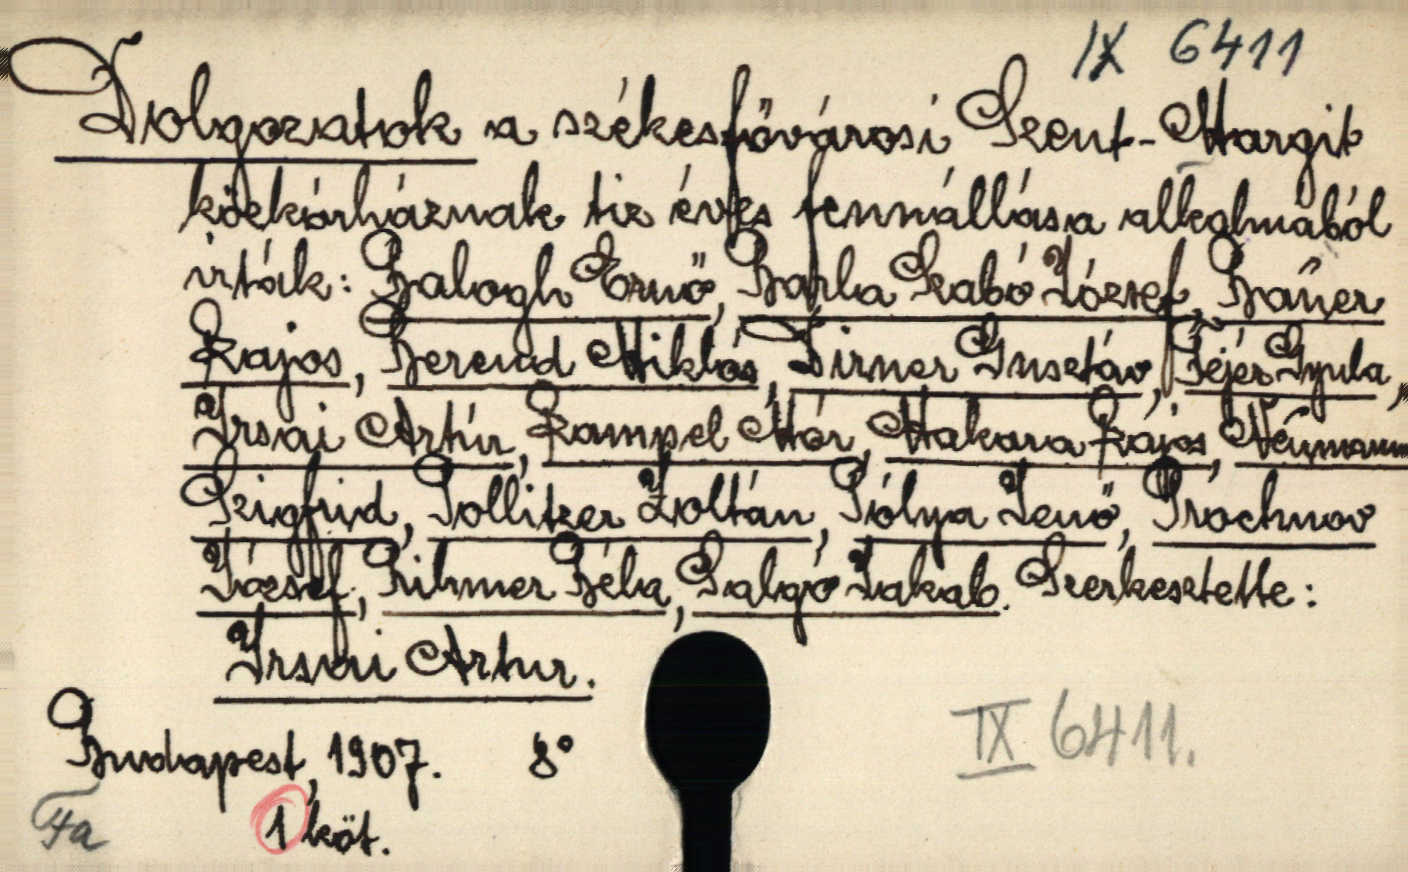 IX 6411
Dolgozatok a székesfővárosi Szent-Margit
közkórháznak tiz éves fennállása alkalmából
irták: Balogh Ernő, Barla Szabó József, Bauer
Lajos, Berend Miklós, Dirner Gusztáv, Fejér Gyula,
Irsai Artúr, Kampel Mór, Makara Lajos, Neumann
Szigfrid, Pollitzer Zoltán, Pólya Jenő, Prochnov
József, Rihmer Béla, Salgó Jakab. Szerkesztette:
Irsai Artur.
Budapest, 1907. 8°
IX 6411.
1 köt.